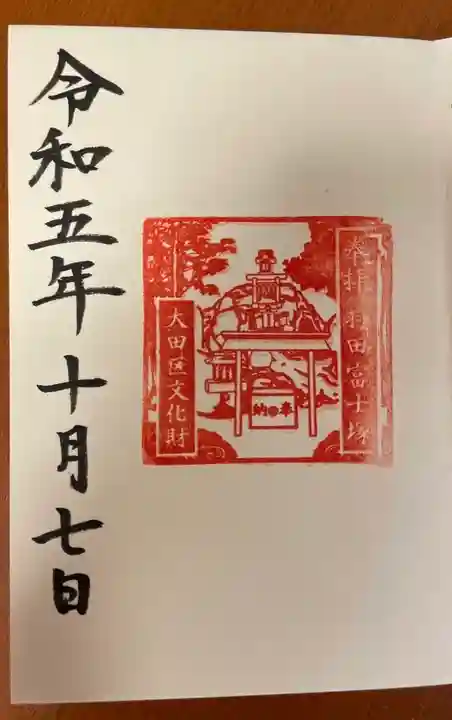 奉拝 羽田富士塚
納 奉
大田区文化財
令和五年十月七日